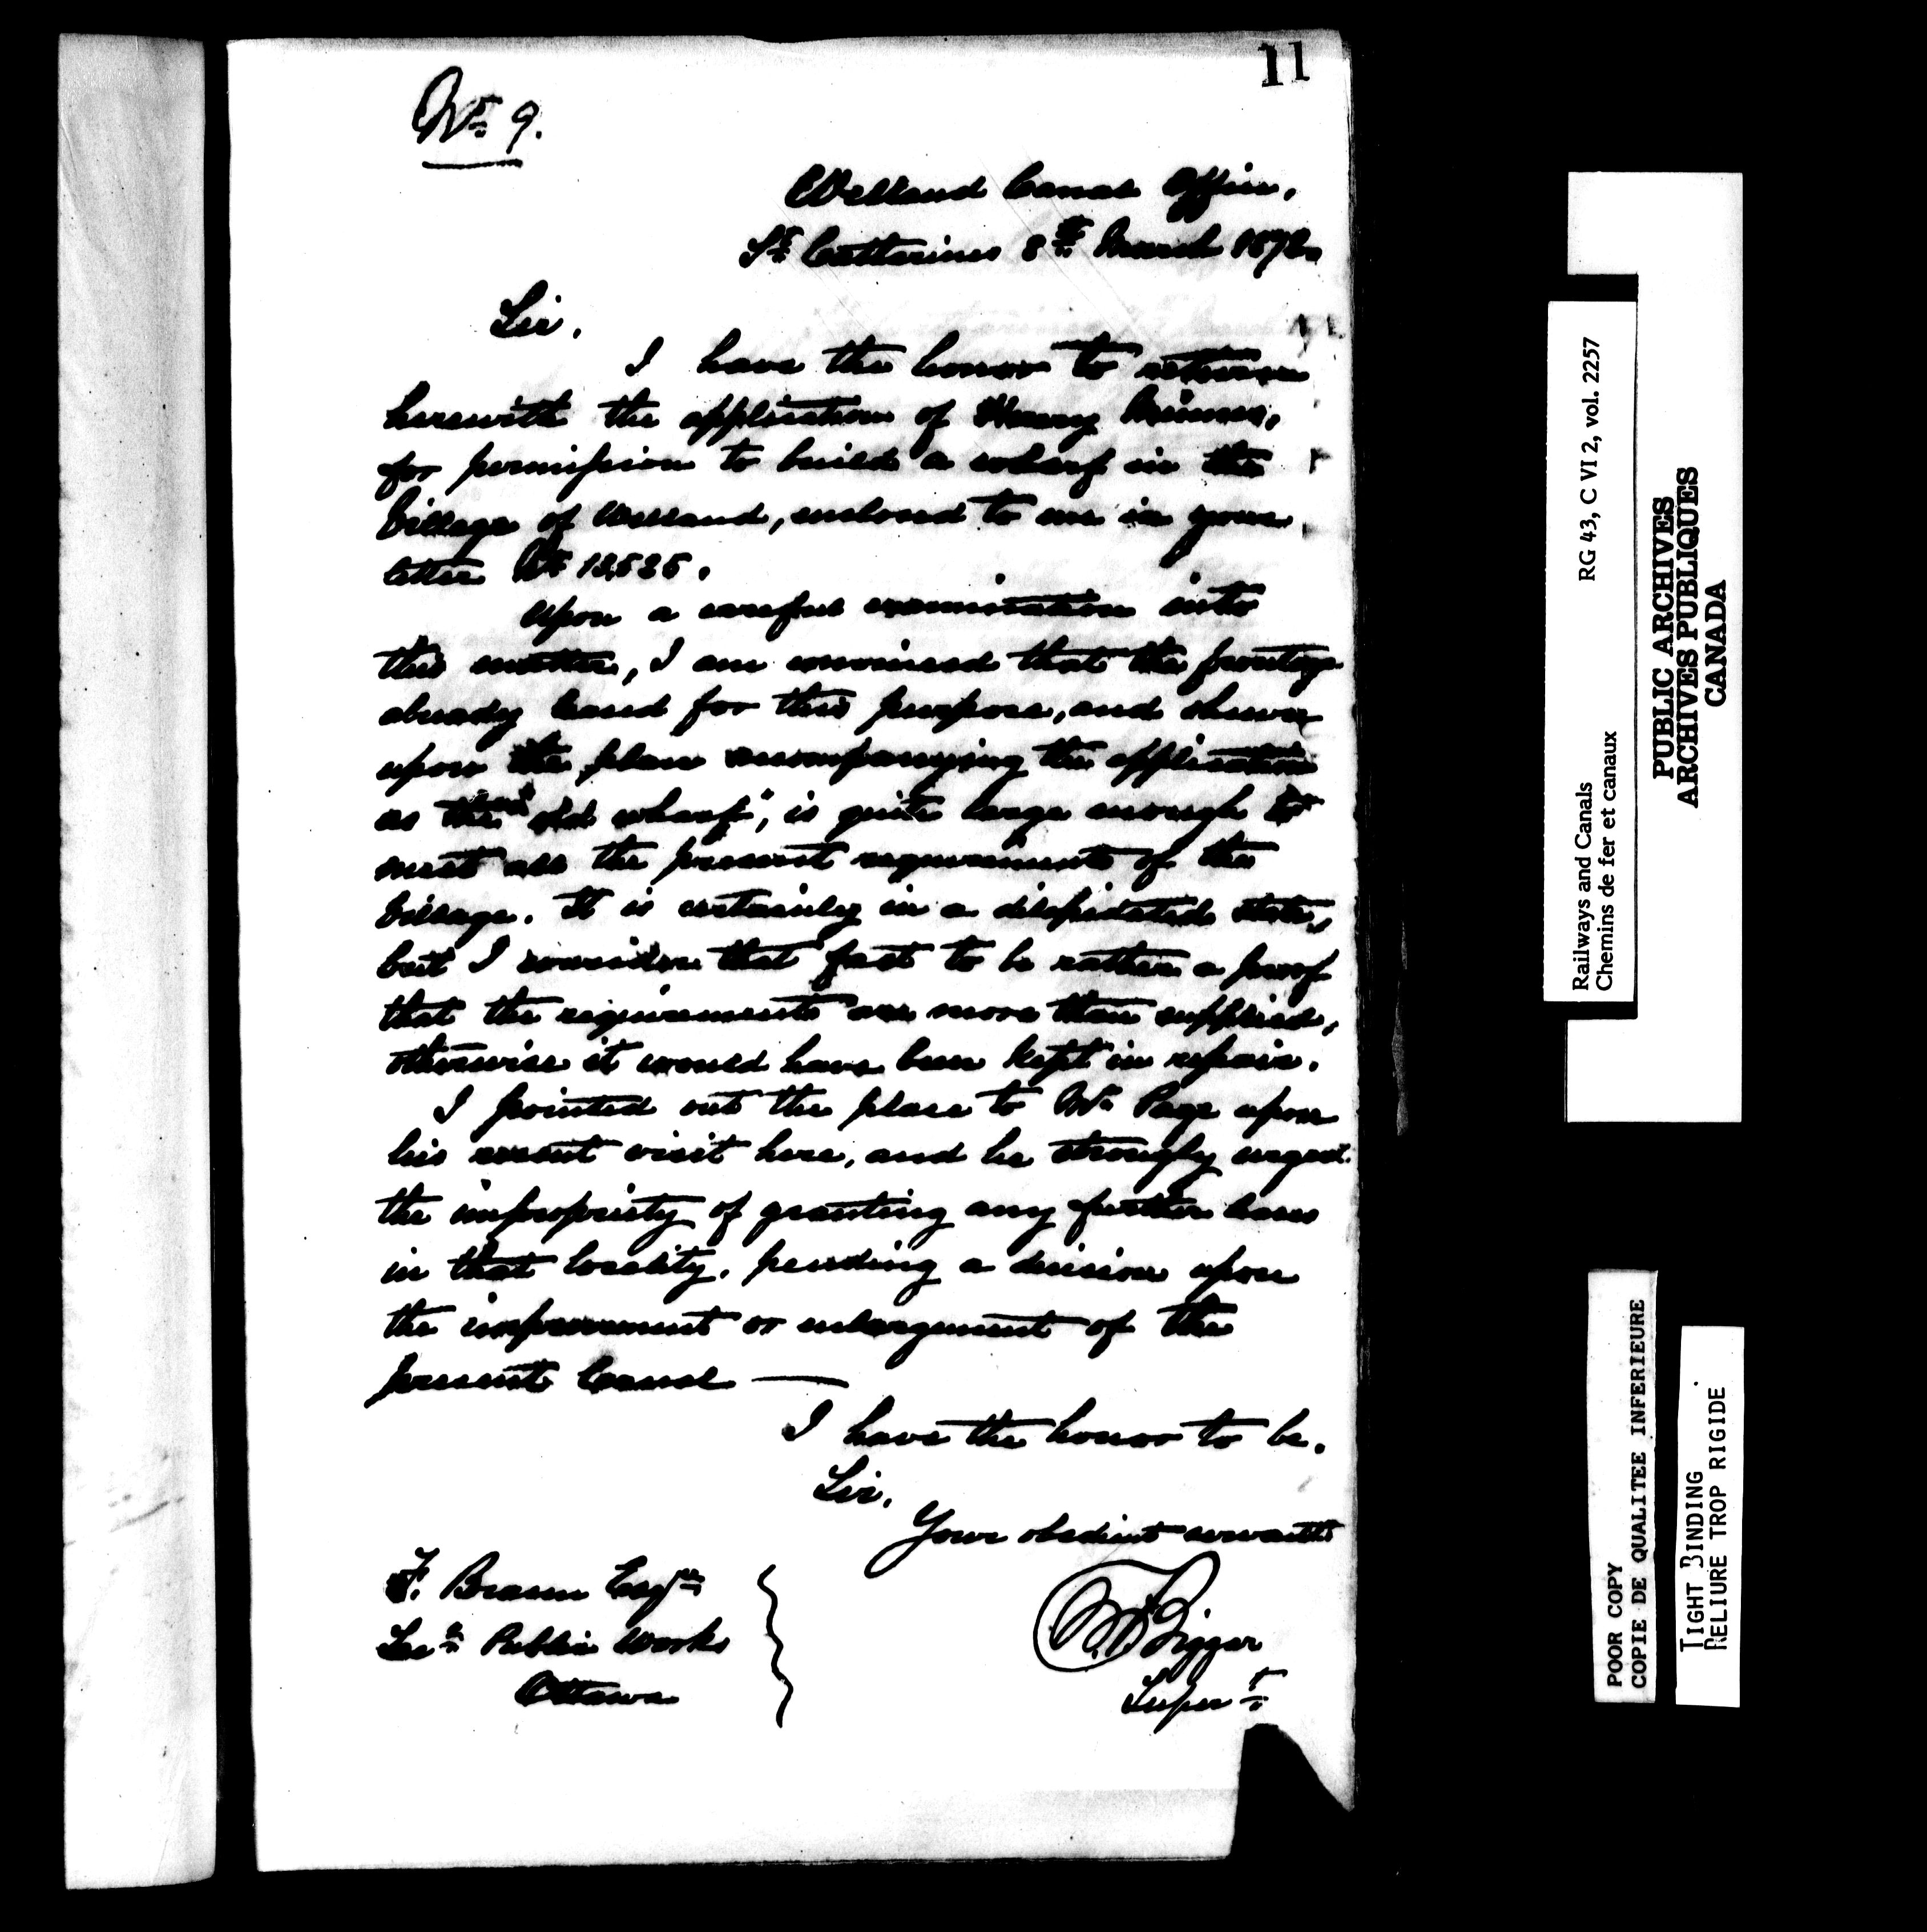 11
No 9.
Welland Canal Office,
St Catharines 8th March 1872.
Sir,
I have the honor to return
herewith the application of Henry
for permission to build a wharf in the
Village of Welland, enclosed to me in your
letter No
Upon a careful examination into
this matter, I am convinced that the frontage
already leased for this purpose, and shewn
upon the plan accompanying the application
as the "old wharf", is quite large enough to
meet all the present requirements of the
Village. It is certainly in a dilapidated state,
but I consider that fact to be rather a proof
that the requirements are more than supplied,
otherwise it would have been kept in repair.
I pointed out the place to Mr Page upon
his recent visit here, and he strongly urged
the impropriety of granting any further leases
in that locality, pending a decision upon
the improvement or enlargement of the
present Canal —
I have the honor to be.
Sir,
Your obedient servant
F. Braun Esqre
Secy Public Works
Ottawa
Bigger
Supert
Railways and Canals RG 43, C VI 2, vol. 2257
Chemins de fer et canaux
PUBLIC ARCHIVES
ARCHIVES PUBLIQUES
CANADA
POOR COPY
COPIE DE QUALITEE INFERIEURE
TIGHT BINDING
RELIURE TROP RIGIDE